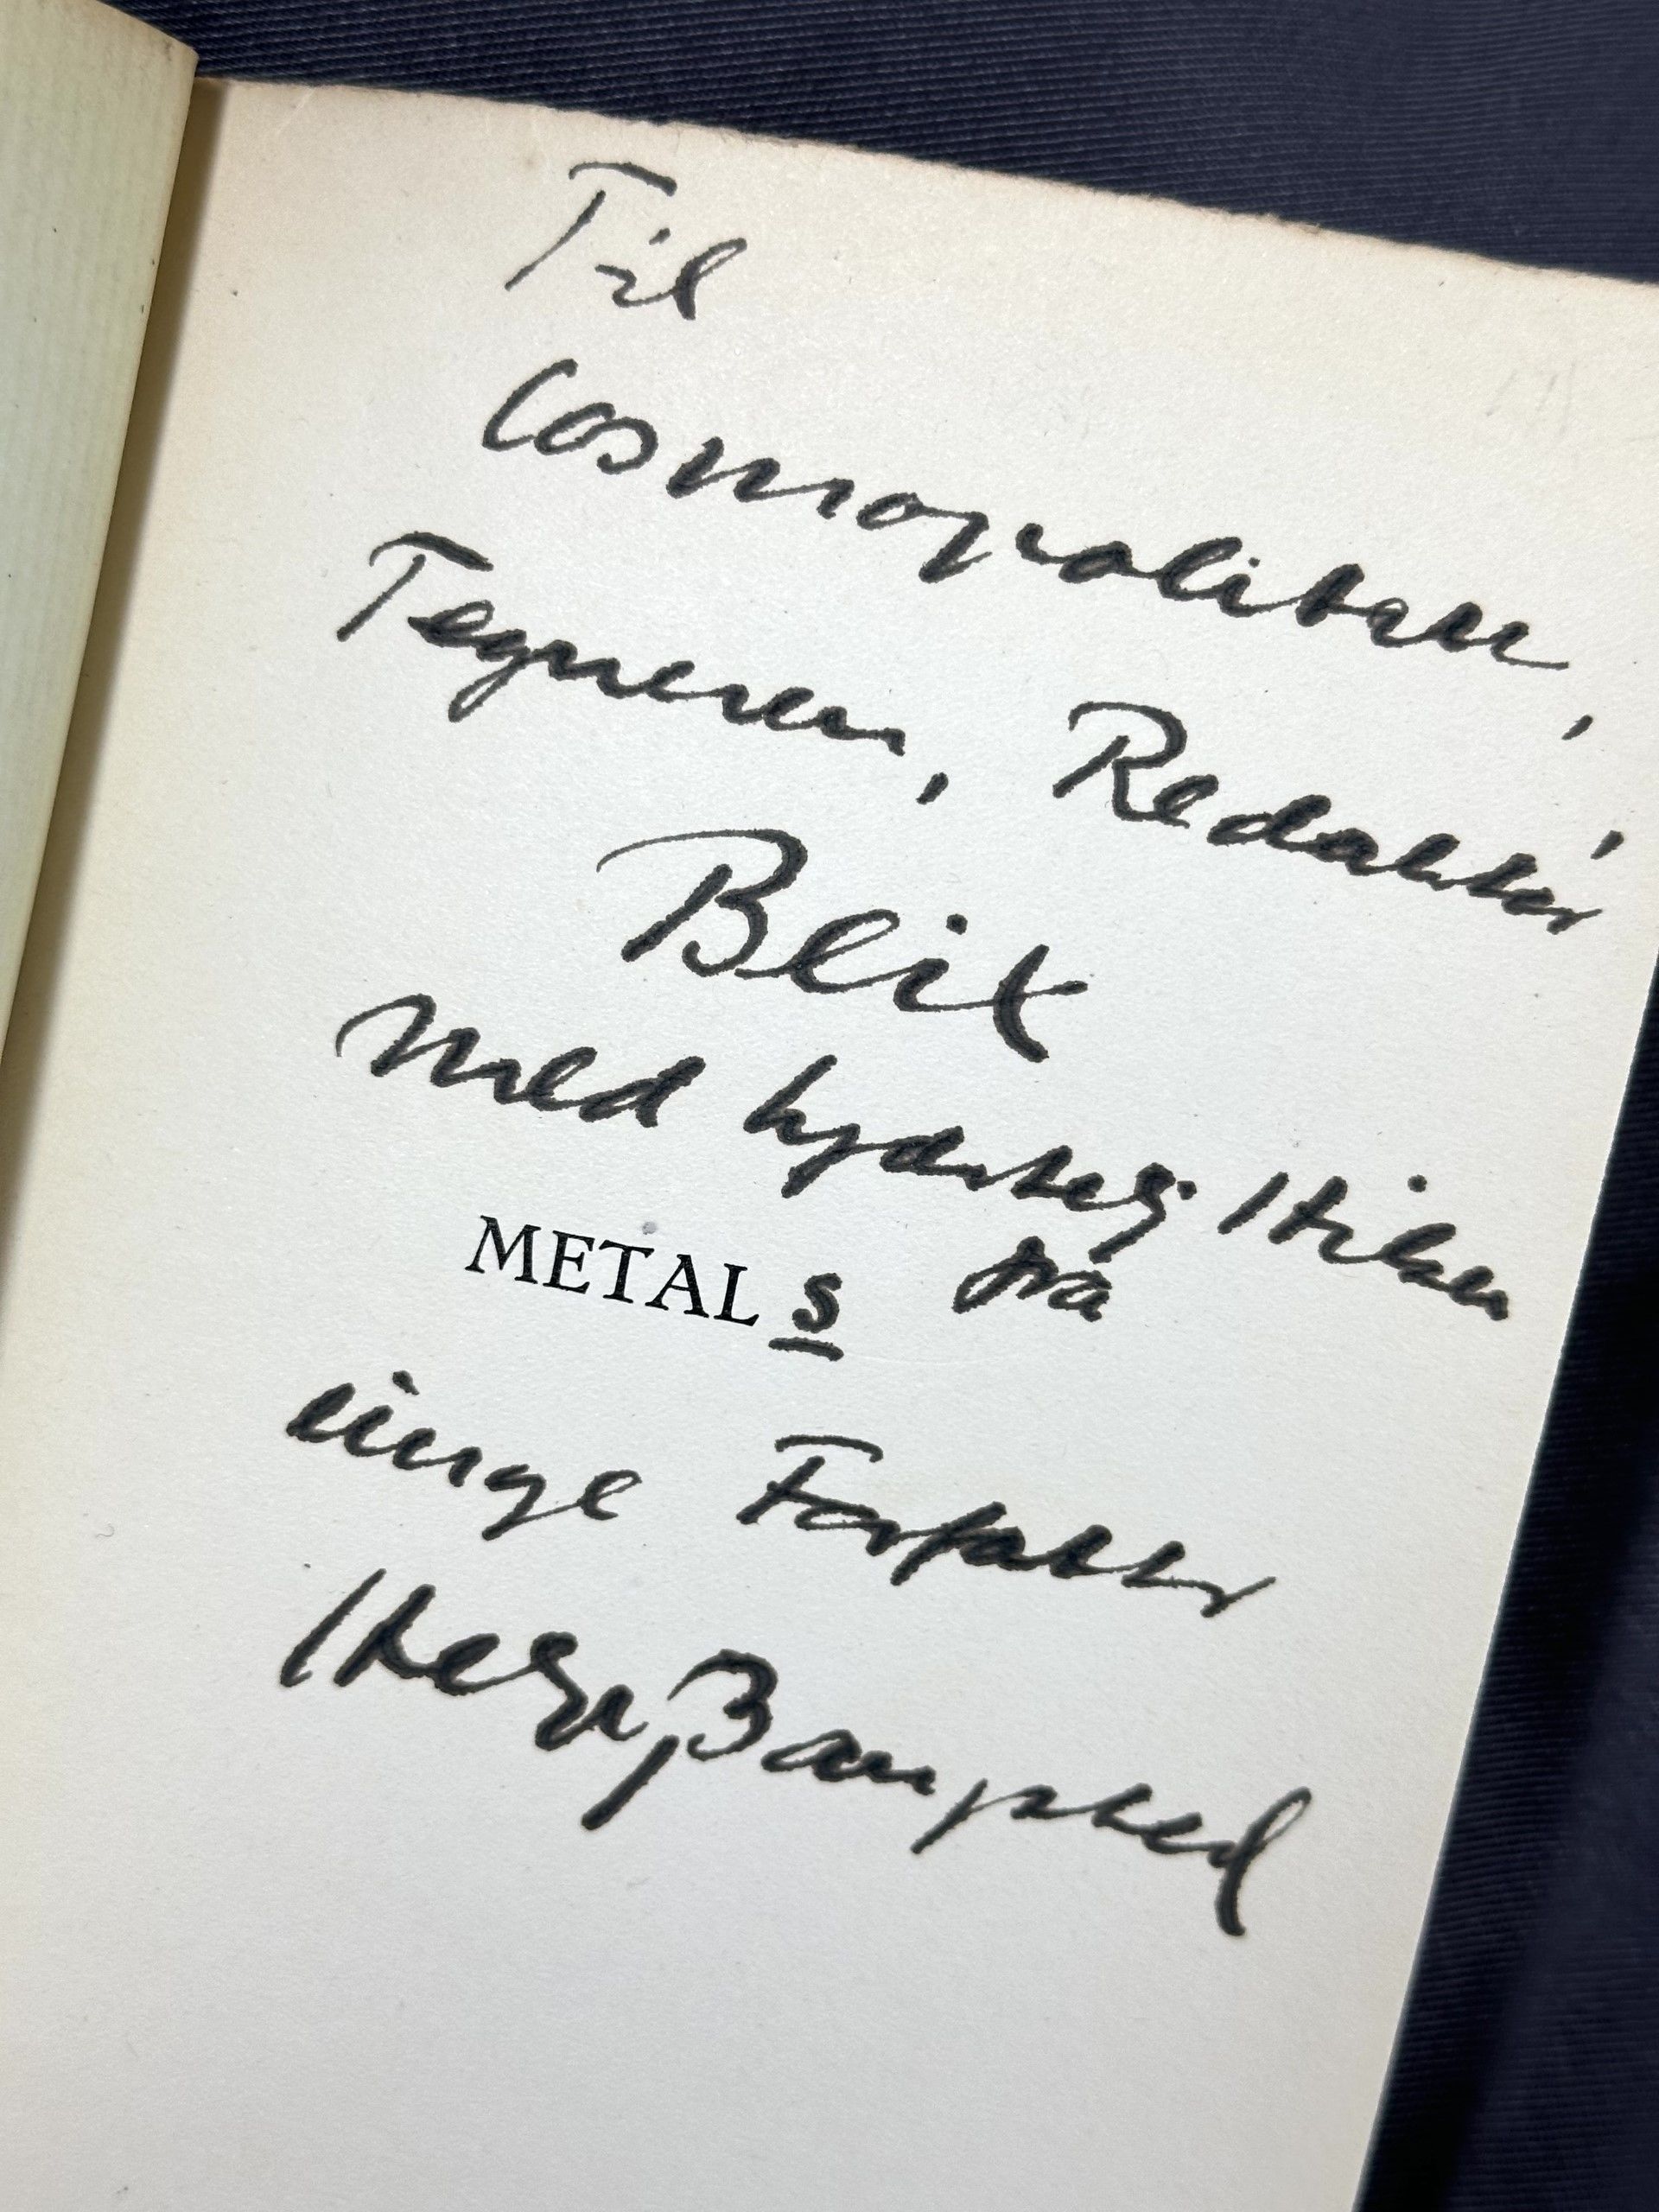 Til
Cosmopoliten,
Tegneren, Redaktør
Blix
med hjertelig Hilsen
fra
METALs
unge Forfatter
Hege Bangsted